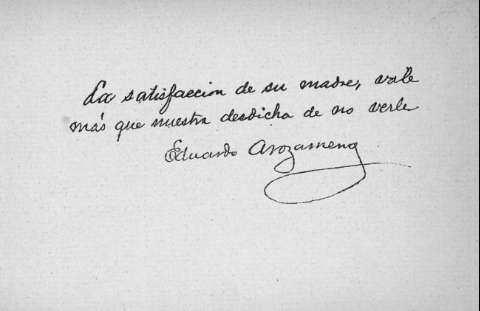 La satisfaccion de su madre, vale
más que nuestra desdicha de no verle
Eduardo Arozamena